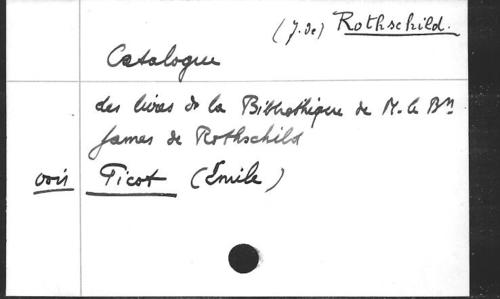 (J. de) Rothschild.
Catalogue
des livres de la Bibliothèque de M. le Bⁿ
James de Rothschild
voir Picot (Émile)